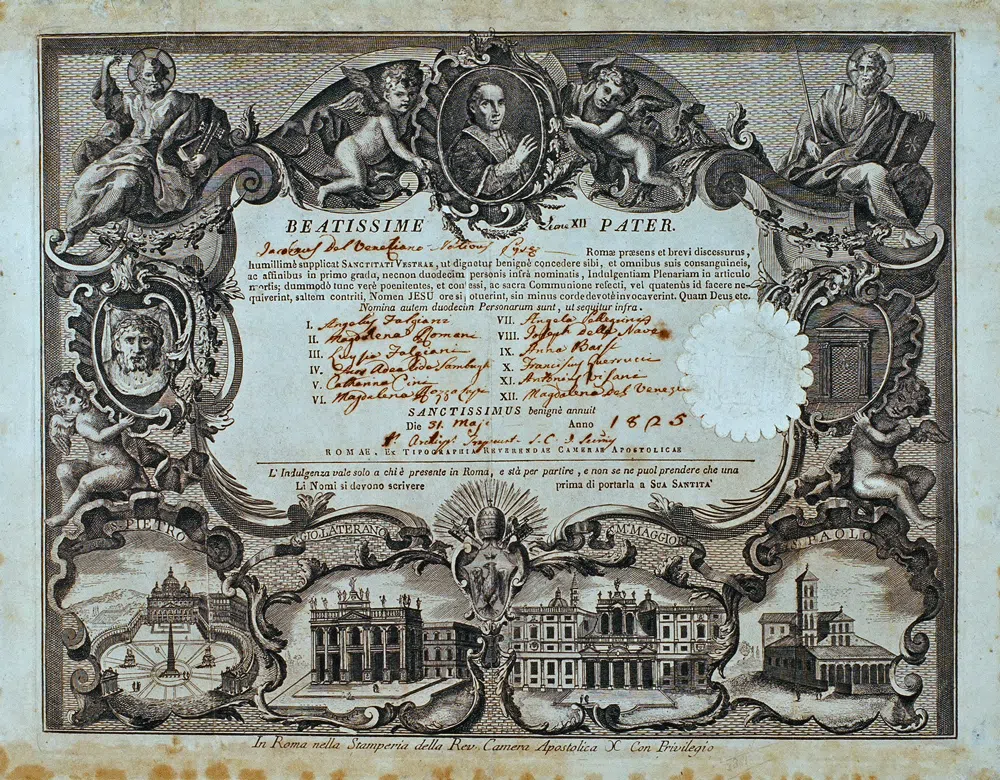 BEATISSIME Leone XII PATER.
Jacobus del Veneziano
Romæ præsens et brevi discessurus,
humillimè supplicat SANCTITATI VESTRAE, ut dignetur benignè concedere sibi, et omnibus suis consanguineis,
ac affinibus in primo gradu, necnon duodecim personis infrà nominatis, Indulgentiam Plenariam in articulo
mortis; dummodò tunc verè poenitentes, et confessi, ac sacra Communione refecti, vel quatenùs id facere ne-
quiverint, saltem contriti, Nomen JESU ore si potuerint, sin minus corde devotè invocaverint. Quam Deus etc.
Nomina autem duodecim Personarum sunt, ut sequitur infra.
I. Angelus Falgiani
II. Magdalena Romani
III. Falgiani
IV.
V. Catharina Cini
VI. Magdalena
VII. Angelo
VIII. Joseph della Nave
IX. Anna Bassi
X. Franciscus Guerrucci
XI. Antonius Pisani
XII. Magdalena del Venezia
SANCTISSIMUS benignè annuit
Die 31. Maji Anno 1825
ROMAE, EX TIPOGRAPHIA REVERENDAE CAMERAE APOSTOLICAE
L'Indulgenza vale solo a chi è presente in Roma, e stà per partire, e non se ne puol prendere che una
Li Nomi si devono scrivere prima di portarla a SUA SANTITA'
S. PIETRO
S. GIO. LATERANO
S. Mª MAGGIORE
S. PAOLO
In Roma nella Stamperia della Rev. Camera Apostolica X Con Privilegio